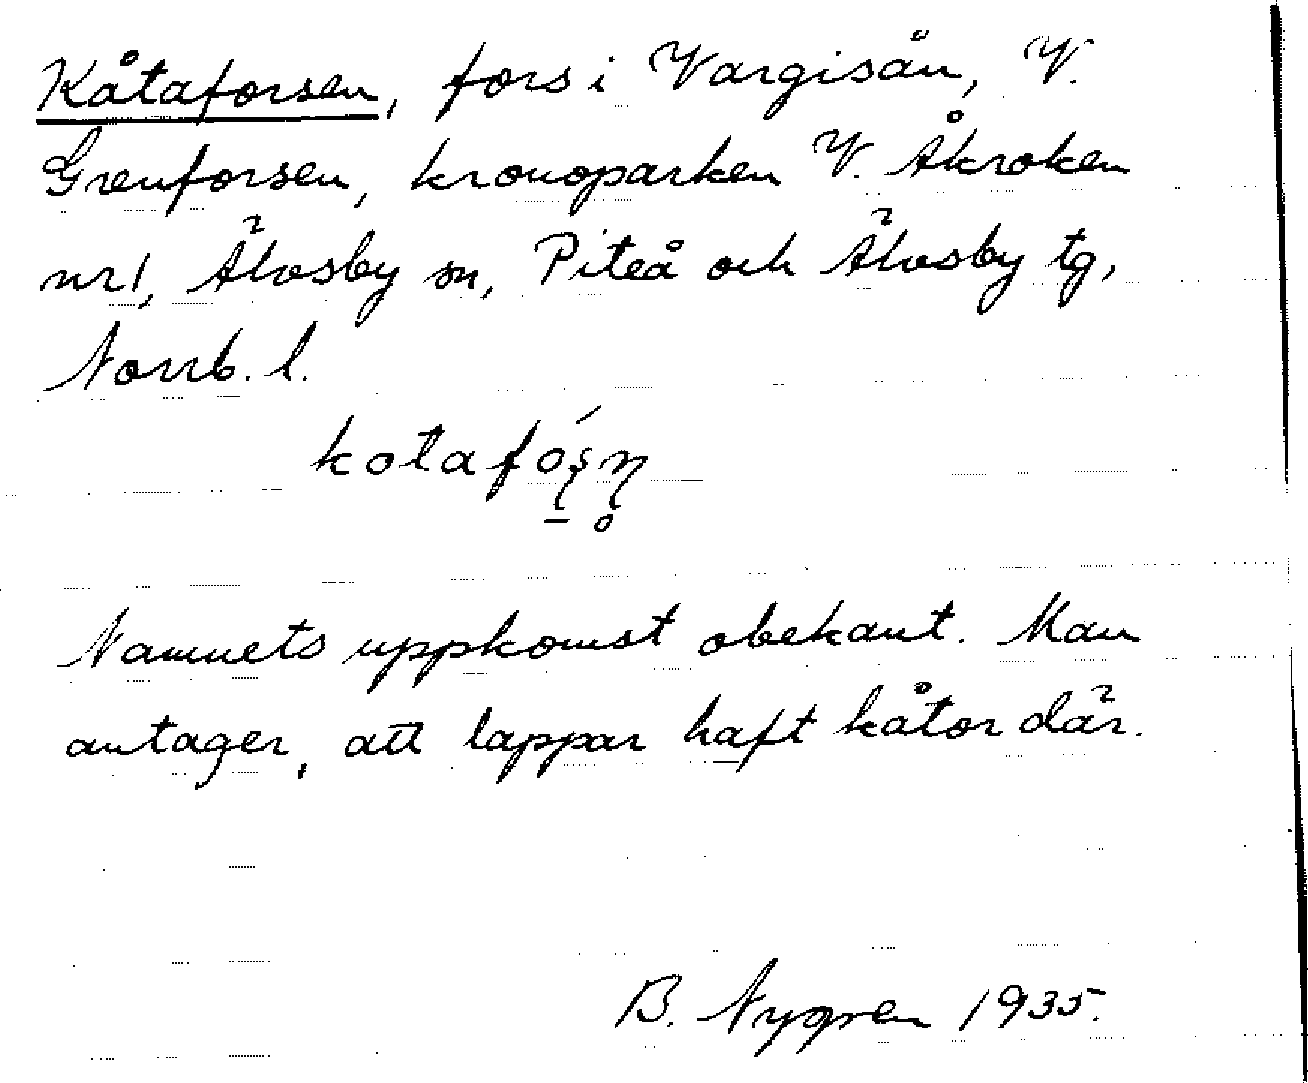 Kåtaforsen, fors i Vargisån, V.
Grenforsen, kronoparken V. Åkroken
nr 1, Älvsby sn, Piteå och Älvsby tg,
Norrb. l.
kotafó̱ʂɳ̥
Namnets uppkomst obekant. Man
antager, att lappar haft kåtor där.
B. Nygren 1935.